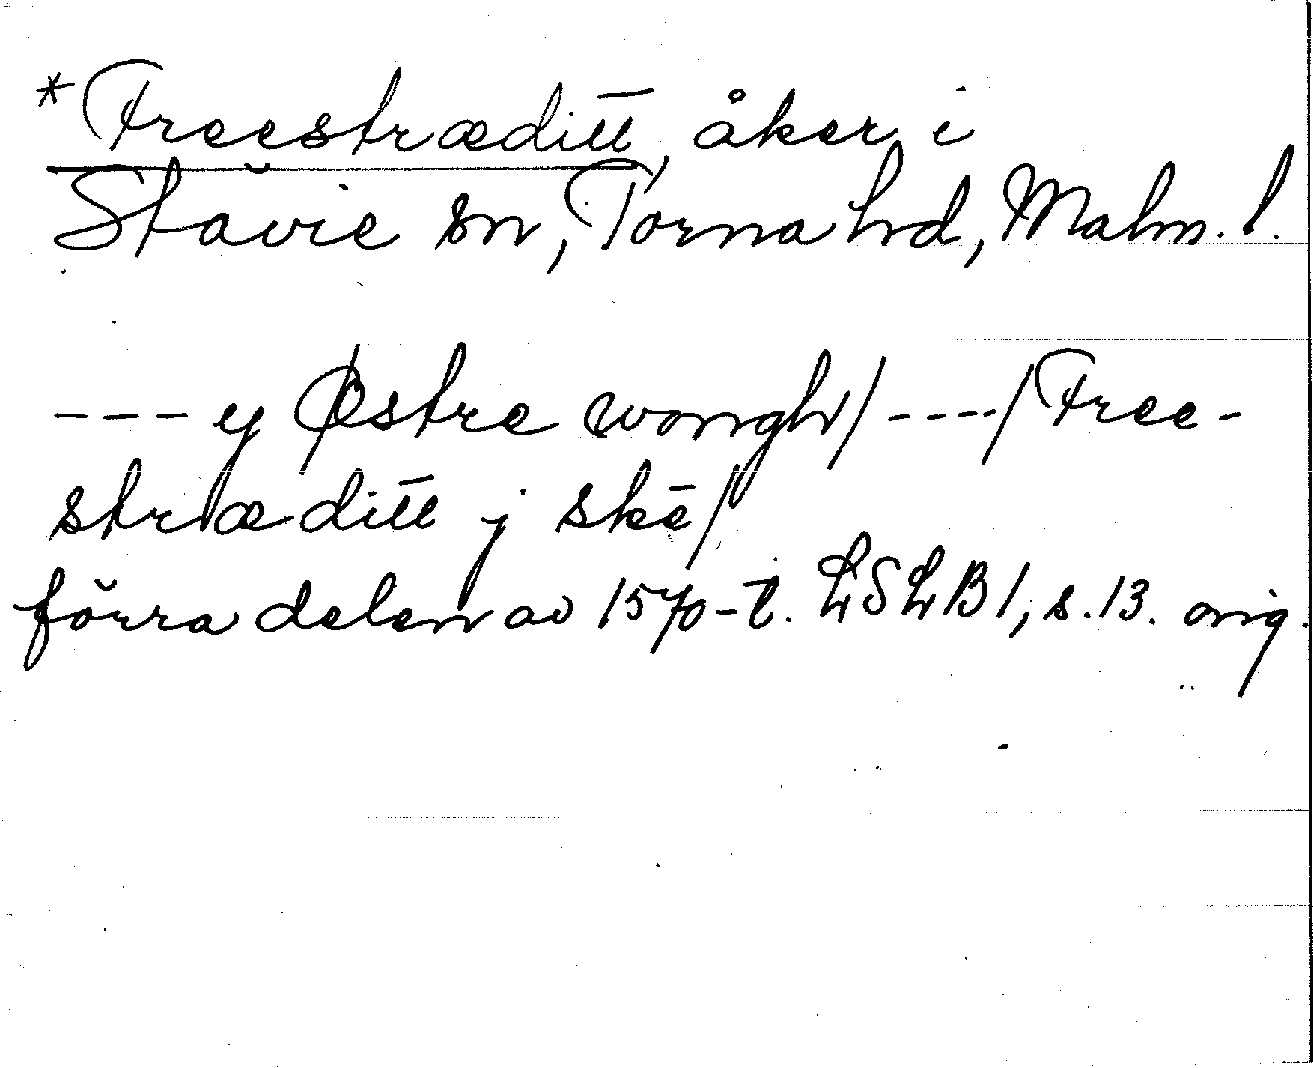 *Freestræditt, åker i
Stävie sn, Torna hd, Malm. l.
--- y Østre wongh/----/Free-
stræditt j skē/
förra delen av 1570-t. LSLB1, s. 13. orig.